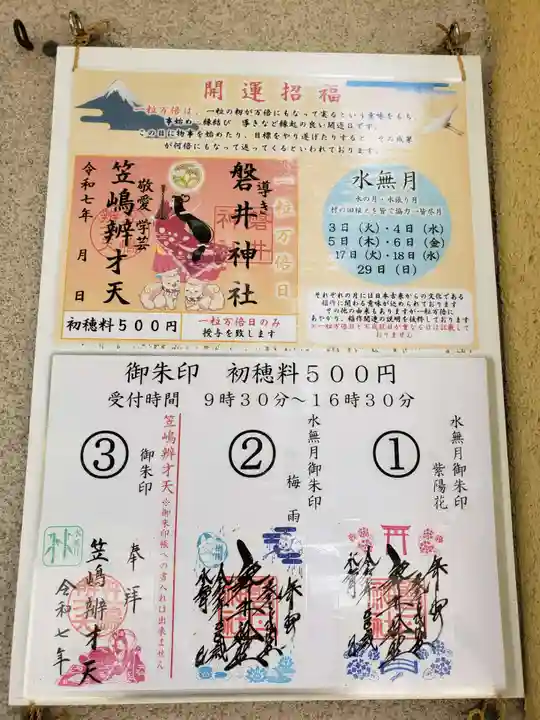 開運招福
一粒万倍は、一粒の籾が万倍にもなって実るという意味をもち、
事始め・縁結び 導きなど縁起の良い開運日です。
この日に物事を始めたり、目標をやり遂げたりすると、その成果
が何倍にもなって返ってくるといわれております。
一粒万倍日
導き
磐井神社
敬愛 学芸
笠嶋辨才天
令和七年 月 日
初穂料500円
一粒万倍日のみ
授与を致します
水無月
水の月・水張り月
村の田植えを皆で協力一皆尽月
3日(火)・4日(水)
5日(木)・6日(金)
17日(火)・18日(水)
29日(日)
それぞれの月には日本古来からの文化である
稲作に関わる意味が込められております
その他の由来もありますが一粒万倍に
あやかり、稲作関連の説明を抜粋しております
御朱印 初穂料500円
受付時間 9時30分~16時30分
①
水無月御朱印
紫陽花
②
水無月御朱印
梅雨
③
笠嶋辨才天
御朱印
笠嶋辨才天☆御朱印帳への書入れは出来ません
奉拝
笠嶋辨才天
令和七年